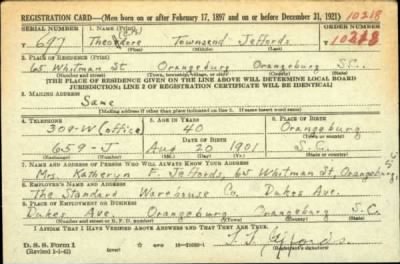 REGISTRATION CARD—(Men born on or after February 17, 1897 and on or before December 31, 1921) 10218
SERIAL NUMBER 1. NAME (Print) ORDER NUMBER
U 697 Theodore Townsend Jeffords 10218
(First) (Middle) (Last)
2. PLACE OF RESIDENCE (Print)
65 Whitman St Orangeburg Orangeburg S.C.
(Number and street) (Town, township, village, or city) (County) (State)
[THE PLACE OF RESIDENCE GIVEN ON THE LINE ABOVE WILL DETERMINE LOCAL BOARD
JURISDICTION; LINE 2 OF REGISTRATION CERTIFICATE WILL BE IDENTICAL]
3. MAILING ADDRESS
Same
[Mailing address if other than place indicated on line 2. If same insert word same]
4. TELEPHONE 5. AGE IN YEARS 6. PLACE OF BIRTH
308-W (office) 40 Orangeburg
DATE OF BIRTH (Town or county)
659-J Aug 20 1901 S.C.
(Exchange) (Number) (Mo.) (Day) (Yr.) (State or country)
7. NAME AND ADDRESS OF PERSON WHO WILL ALWAYS KNOW YOUR ADDRESS
Mrs. Katheryn F. Jeffords, 65 Whitman St, Orangeburg, S.C.
8. EMPLOYER'S NAME AND ADDRESS
The Standard Warehouse Co. Dukes Ave.
9. PLACE OF EMPLOYMENT OR BUSINESS
Dukes Ave. Orangeburg Orangeburg S.C.
(Number and street or R. F. D. number) (Town) (County) (State)
I AFFIRM THAT I HAVE VERIFIED ABOVE ANSWERS AND THAT THEY ARE TRUE.
D. S. S. Form 1
(Revised 1-1-42) (over) T. T. Jeffords
(Registrant's signature)